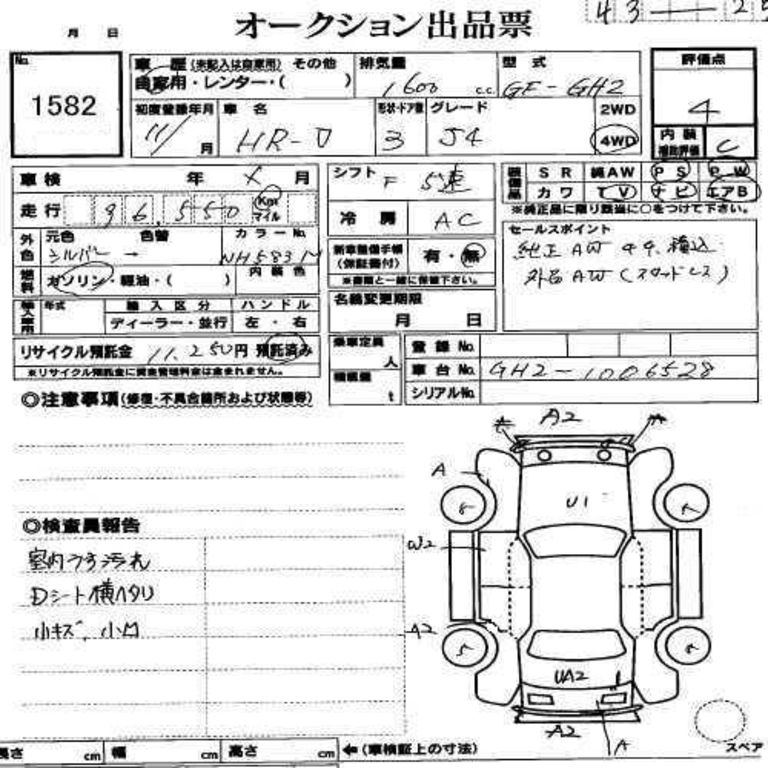 43 — 25
オークション出品票
月 日
No. 1582
車歴 (未記入は自家用) その他
自家用・レンター・( )
排気量 1600 c.c.
型式 GF-GH2
評価点 4
初度登録年月 11/ 月
車名 HR-V
形状・ドア数 3
グレード J4
2WD
4WD
内装補助評価 C
車検 年 月
シフト F 5速
装備品 SR 純AW PS PW
カワ TV ナビ エアB
※純正品に限り該当に○をつけて下さい。
走行 96,550 Km マイル
冷房 AC
外色 元色 色替 カラーNo.
シルバー → NH583M
新車整備手帳 (保証書付) 有・無
※書類と一緒に保管下さい。
セールスポイント
純正AW 44.積込
外品AW(スタッドレス)
燃料 ガソリン・軽油・( ) 内装色
名義変更期限
月 日
輸入車用 年式 輸入区分 ハンドル
ディーラー・並行 左・右
リサイクル預託金 11,250円 預託済み
※リサイクル預託金に資金管理料金は含まれません。
乗車定員 人
積載量 t
登録No.
車台No. GH2-1006528
シリアルNo.
◎注意事項(修復・不具合箇所および状態等)
A2
A
U1
W2
◎検査員報告
室内うす汚れ
Dシート横ヘタリ
小キズ、小凹
A2
UA2
A2
A
スペア
長さ cm 幅 cm 高さ cm ←(車検証上の寸法)